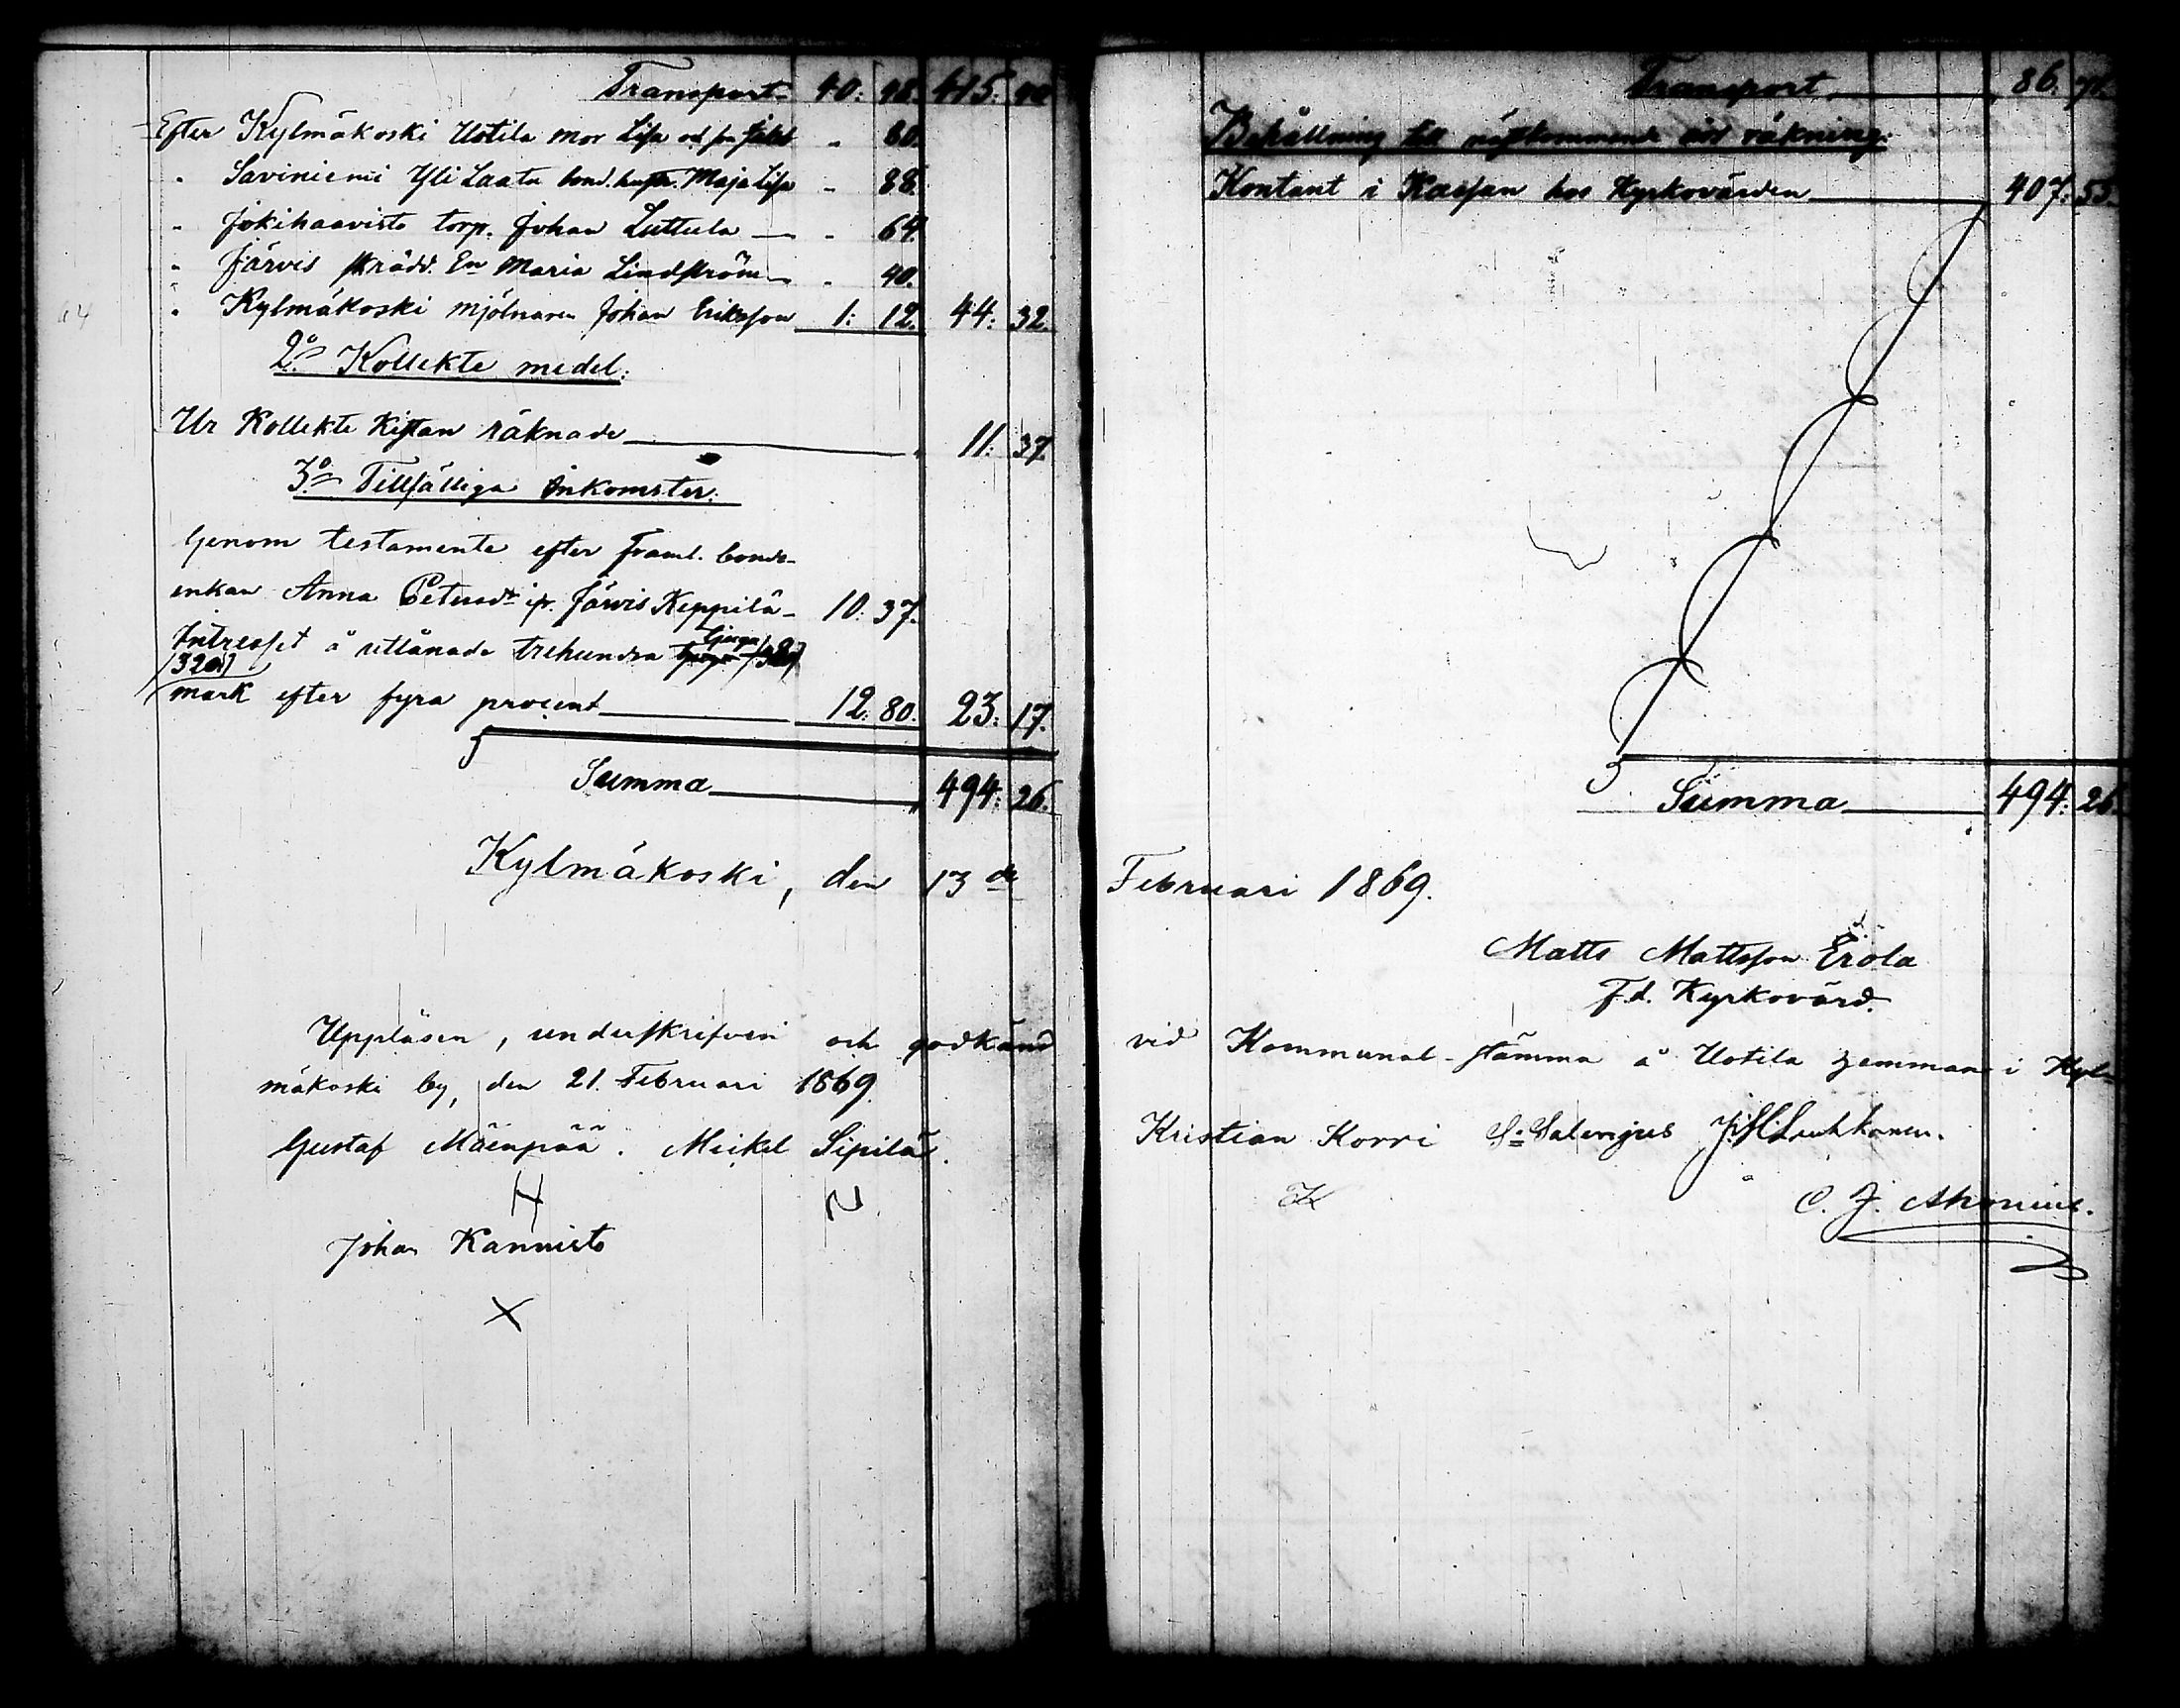 Transport 40: 98. 415: 40
Efter Kylmäkoski Uotila mor Lisa 60.
" Saviniemi Yli Laata bond. hustr. Maja Lisa " 88.
" Jokihaavisto torp. Johan Luttula " 64.
" Järvis skrädd. En Maria Lindström " 40.
" Kylmäkoski mjölnaren Johan Eriksson 1: 12. 44: 32.
2o Kollekte medel:
Ur Kollekte Kistan räknade 11: 37.
3o Tillfälliga Inkomster:
Genom testamente efter framl. bonde-
enkan Anna Petersdr ifr. Järvis Keppilä 10: 37.
Intresset å utlånade trehundra tjugu
/320/
mark efter fyra procent 12: 80. 23: 17.
Summa 494: 26.
Kylmäkoski, den 13de
Uppläsen, underskrifven och godkänd
mäkoski by, den 21. Februari 1869.
Gustaf Mäenpää. Meikel Sipilä.
Johan Kannisto
X
Transport 86. 71.
Behållning till nästkommande års räkning:
Kontant i Kassan hos Kyrkovärden 407: 55.
Summa 494: 26.
Februari 1869.
Matts Mattsson Erola
F.d. Kyrkovärd.
vid Kommunal-stämma å Uotila hemman i Kyl-
Kristian Korri S. Salenjus